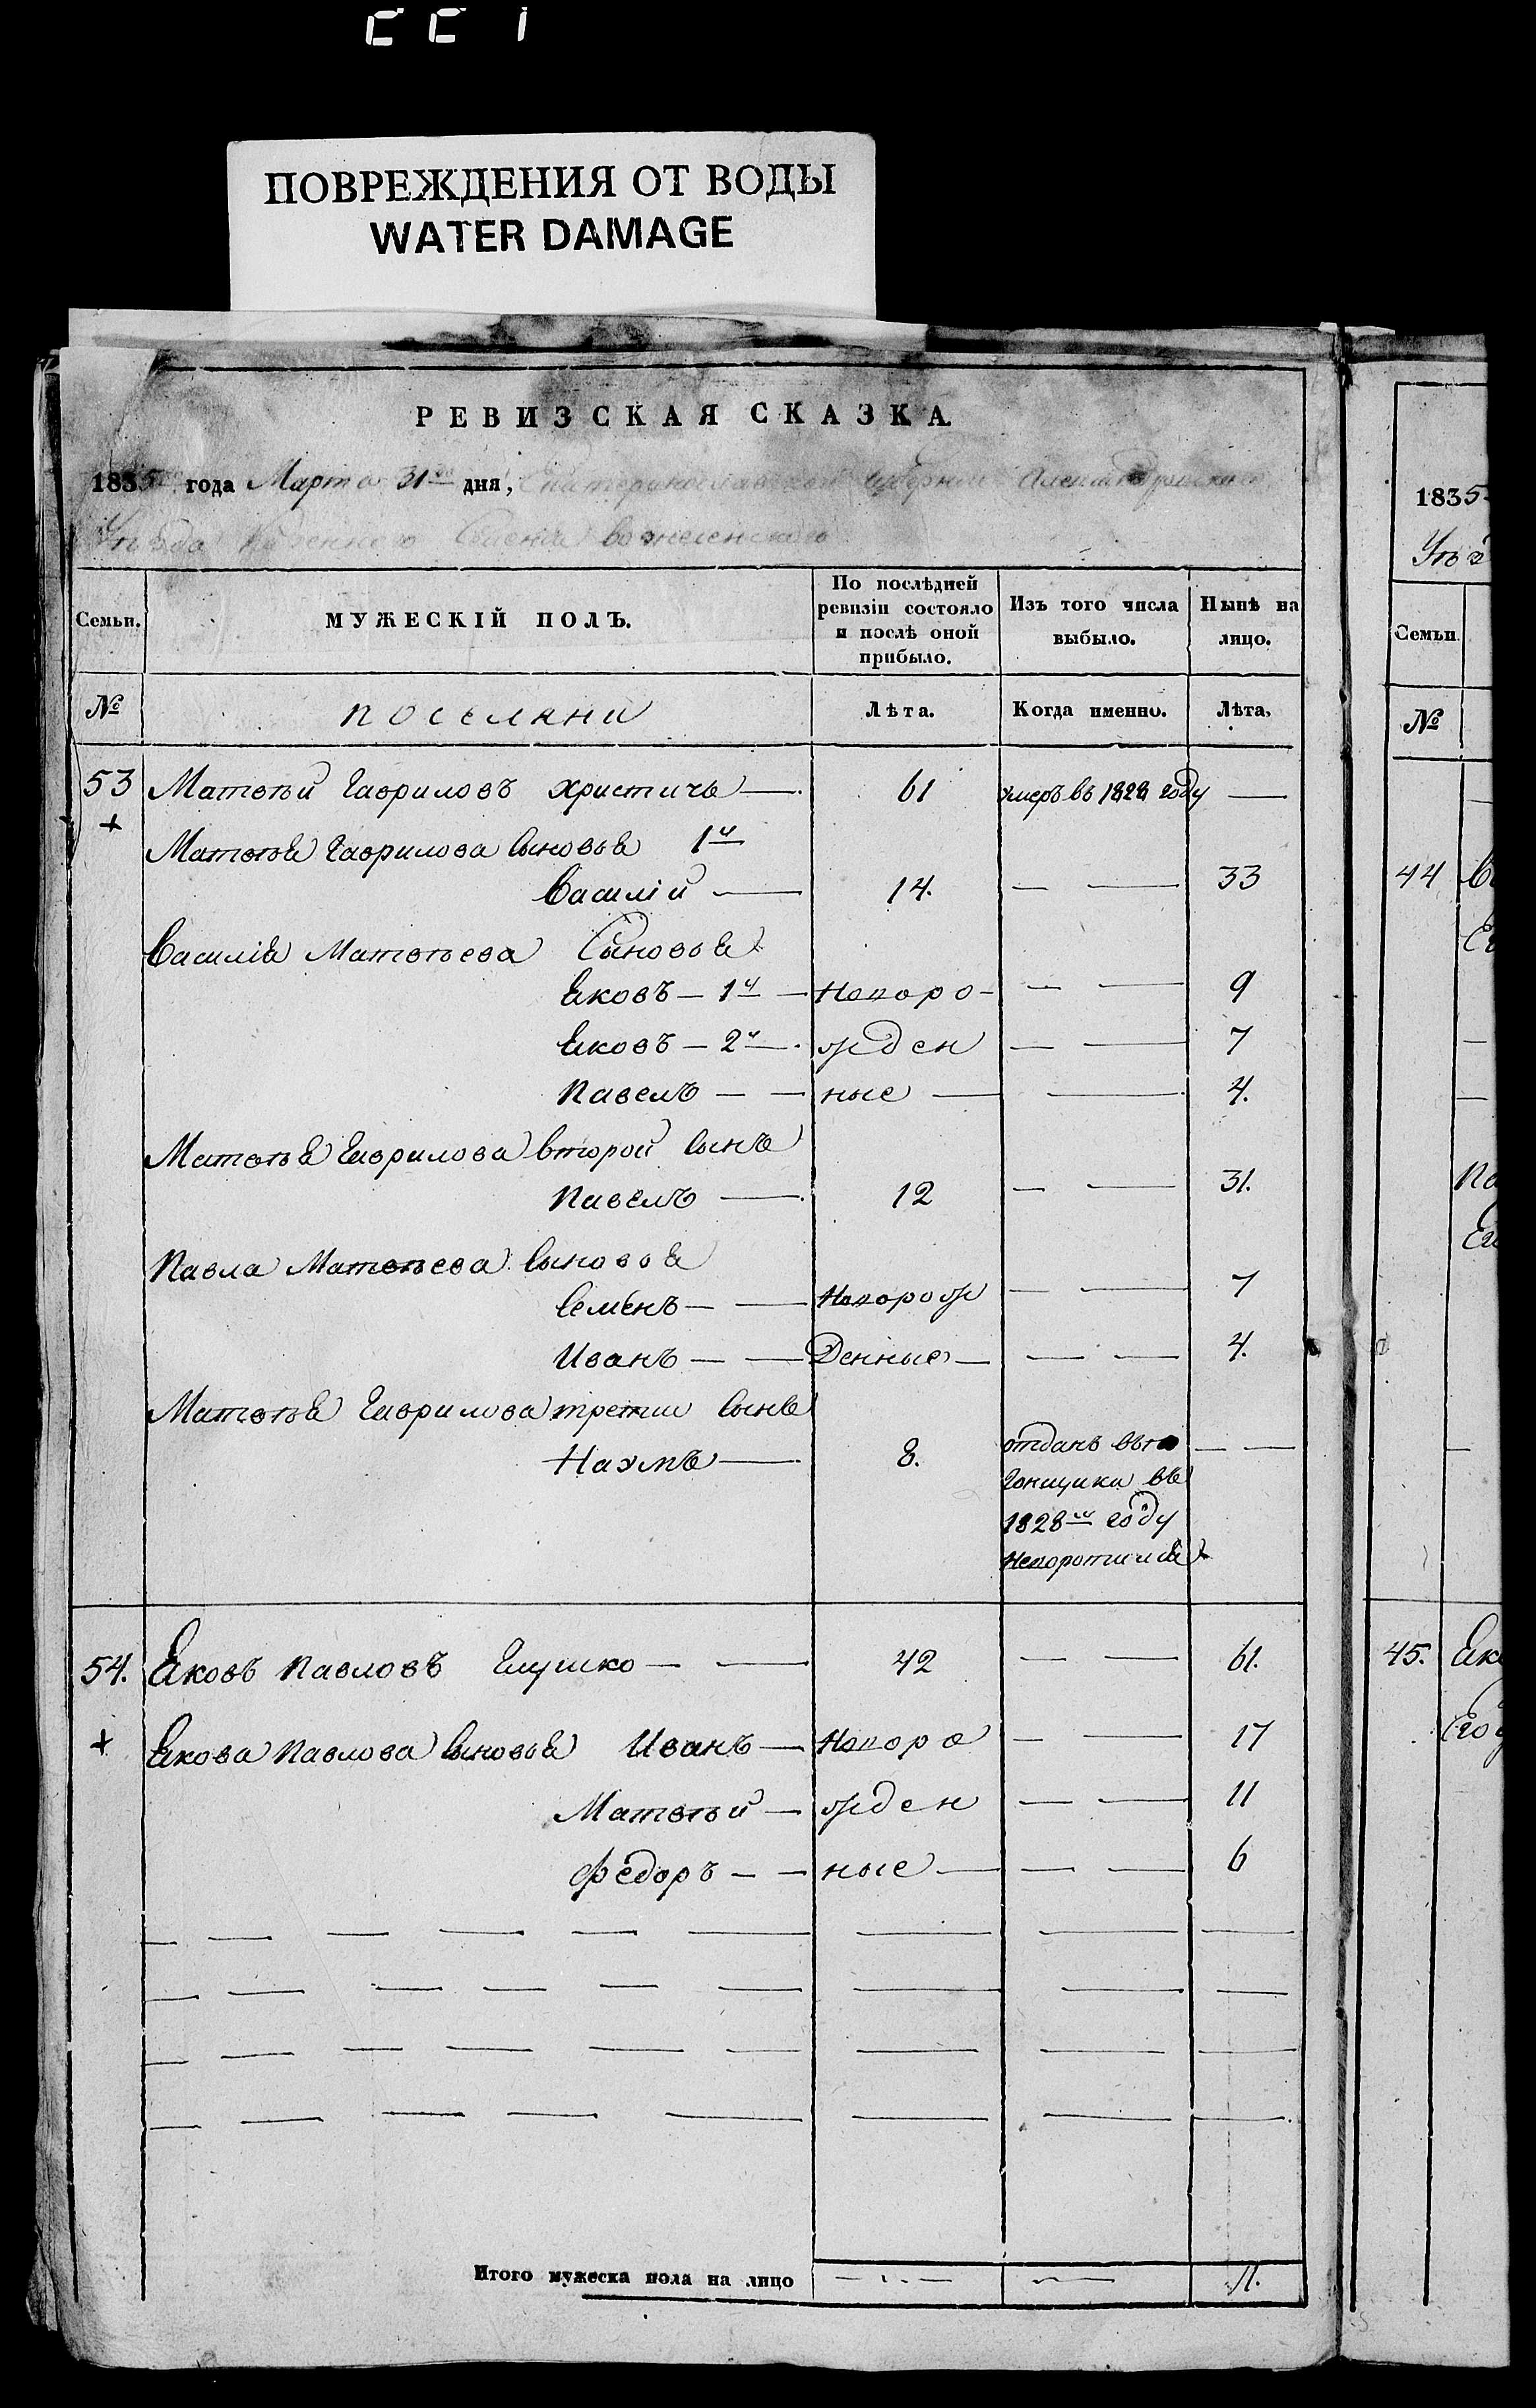 ПОВРЕЖДЕНИЯ ОТ ВОДЫ
WATER DAMAGE
РЕВИЗСКАЯ СКАЗКА
1835 года Марта 31го дня, Екатеринославской Губернии Александрийского
Уѣзда Казенного Селения
Семьи.
МУЖЕСКІЙ ПОЛЪ.
По послѣдней ревизіи состояло и послѣ оной прибыло.
Изъ того числа выбыло.
Нынѣ на лицо.
№
поселяни
Лѣта.
Когда именно.
Лѣта.
53 Матвѣй Гавриловъ Христичь — 61 умеръ въ 1828 году —
+
Матвѣя Гаврилова Сыновья 1й
Василій — 14. — — 33
Василія Матвѣева Сыновья
Яковъ — 1й — Непоро- — — 9
Яковъ — 2й — жден — — 7
Павелъ — — ные — — 4.
Матвѣя Гаврилова второй Сынъ
Павелъ — 12 — — 31.
Павла Матвѣева Сыновья
Семенъ — — Непорож — — 7
Иванъ — — Денные — — — 4.
Матвѣя Гаврилова третий Сынъ
Наумъ — 8. отданъ — —
Гонщики въ
1828м году
54. Яковъ Павловъ Глушко — — 42 — — 61.
+ Якова Павлова Сыновья Иванъ — Непоро — — 17
Матвѣй — жден — — 11
Федоръ — — ные — — — 6
Итого мужеска пола на лицо — — — 11.
1835
Уѣз
Семьи
№
44
45. Яко
Его